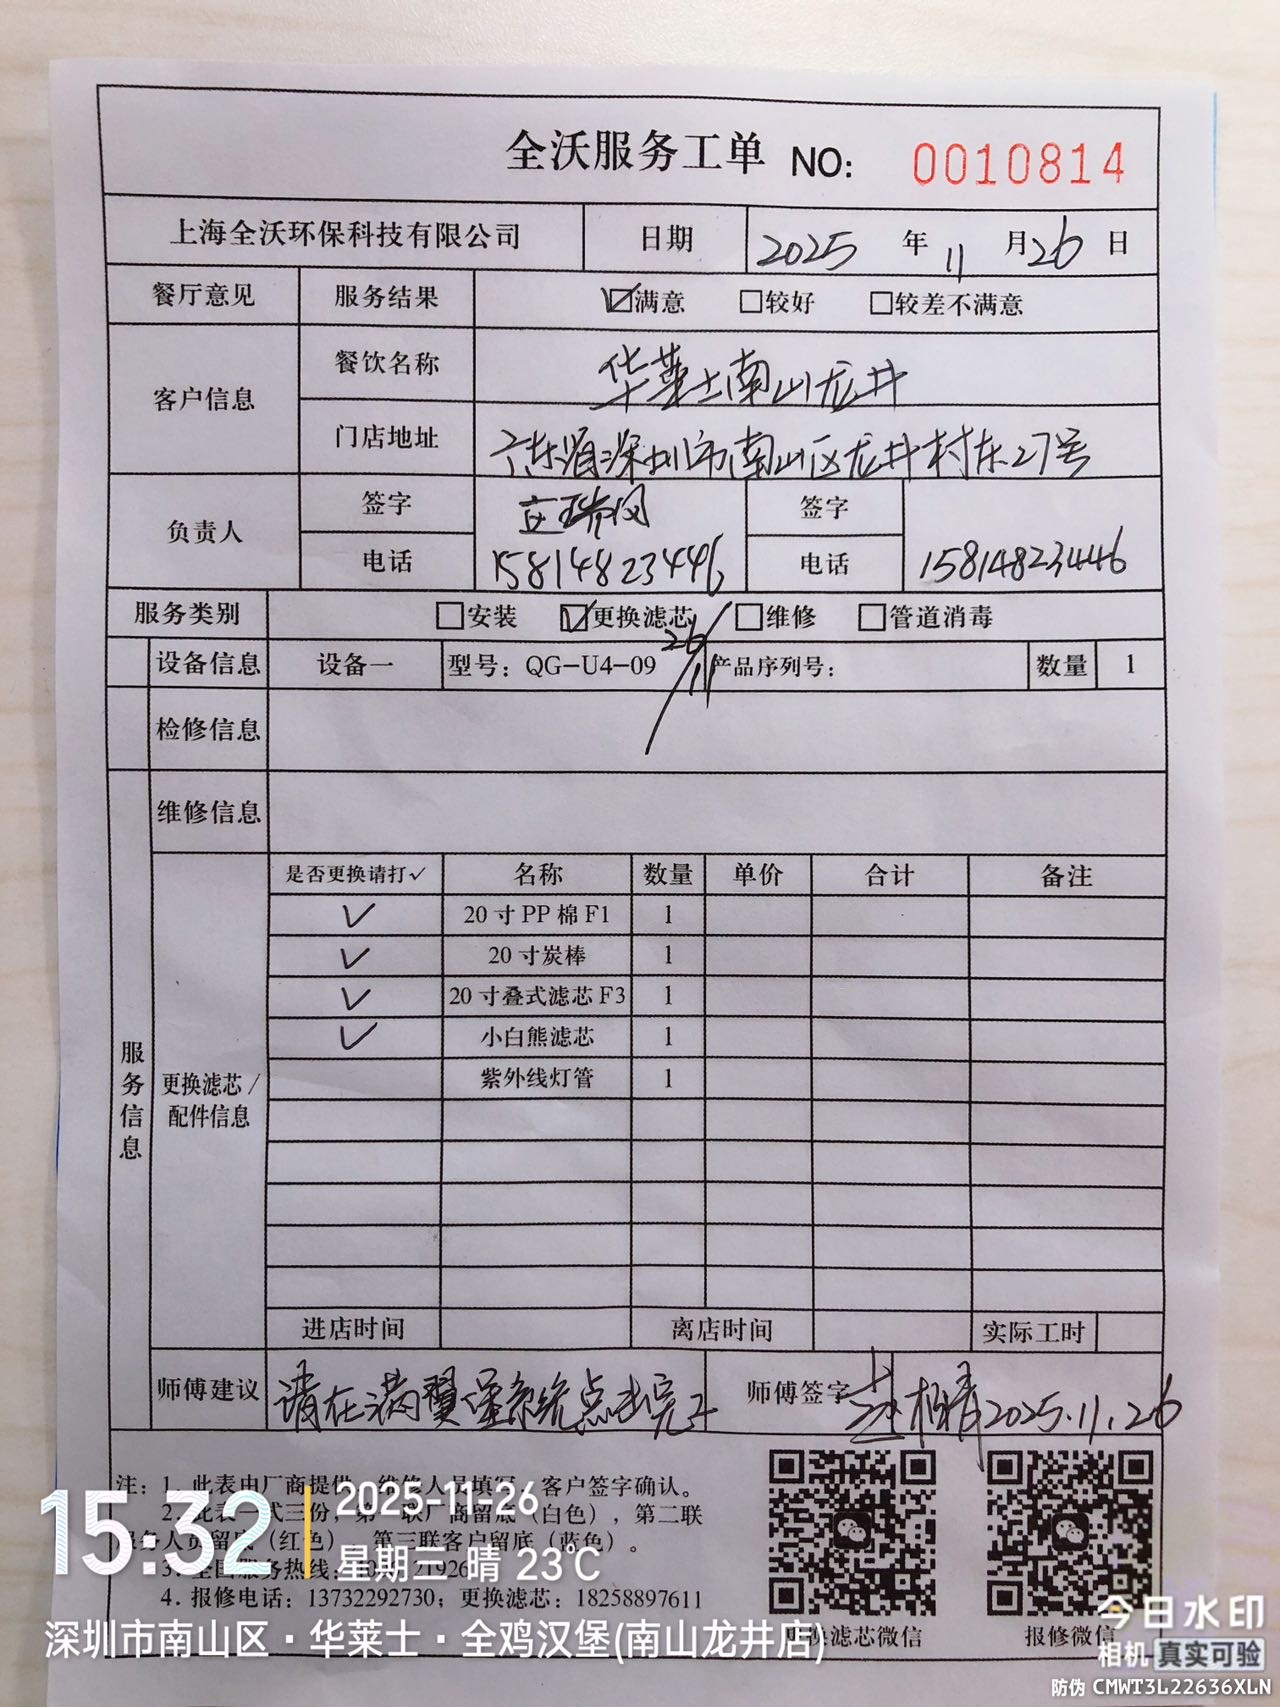 全沃服务工单 NO: 0010814
上海全沃环保科技有限公司 日期 2025 年 11 月 26 日
餐厅意见 服务结果 ☑满意 □较好 □较差不满意
客户信息 餐饮名称 华莱士南山龙井
门店地址 广东省深圳市南山区龙井村东27号
负责人 签字 签字
电话 15814823446 电话 15814823446
服务类别 □安装 ☑更换滤芯 □维修 □管道消毒
26/11
设备信息 设备一 型号：QG-U4-09 产品序列号： 数量 1
检修信息
维修信息
服务信息
更换滤芯/配件信息
是否更换请打✓ 名称 数量 单价 合计 备注
✓ 20寸PP棉F1 1
✓ 20寸炭棒 1
✓ 20寸叠式滤芯F3 1
✓ 小白熊滤芯 1
紫外线灯管 1
进店时间 离店时间 实际工时
师傅建议 请在满翼堡系统点击完工 师傅签字 2025.11.26
注：1. 此表由厂商提供，维修人员填写，客户签字确认。
2. 此表一式三份，第一联厂商留底（白色），第二联
服务人员留底（红色），第三联客户留底（蓝色）。
3. 全国服务热线：
4. 报修电话：13732292730；更换滤芯：18258897611
更换滤芯微信 报修微信
15:32 2025-11-26
星期三 晴 23℃
深圳市南山区·华莱士·全鸡汉堡(南山龙井店)
今日水印
相机 真实可验
防伪 CMWT3L22636XLN